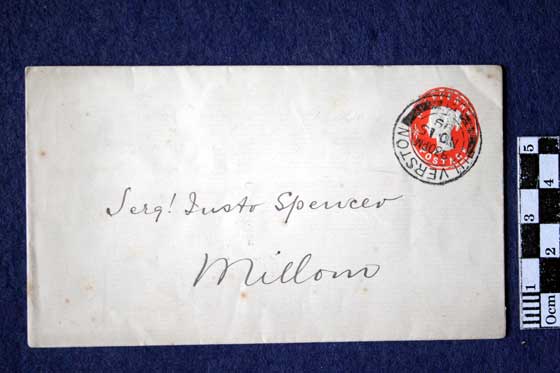 Serg! Insto Spencer
Millom
ULVERSTON
POSTAGE
5
4
3
2
1
0cm